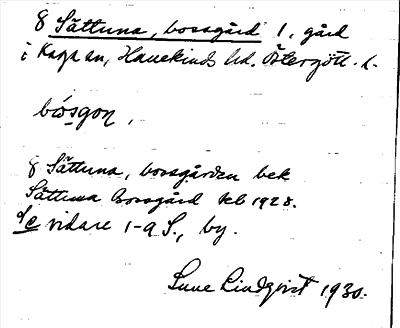 8 Sättuna, bossgård 1, gård
i Kaga sn, Hanekinds hd. Östergötl. l.
bósgoṇ,
8 Sättuna, bossgården bek
Sättuna Bossgård Jeb 1928.
se vidare 1-9 S., by.
Sune Lindqvist 1930.